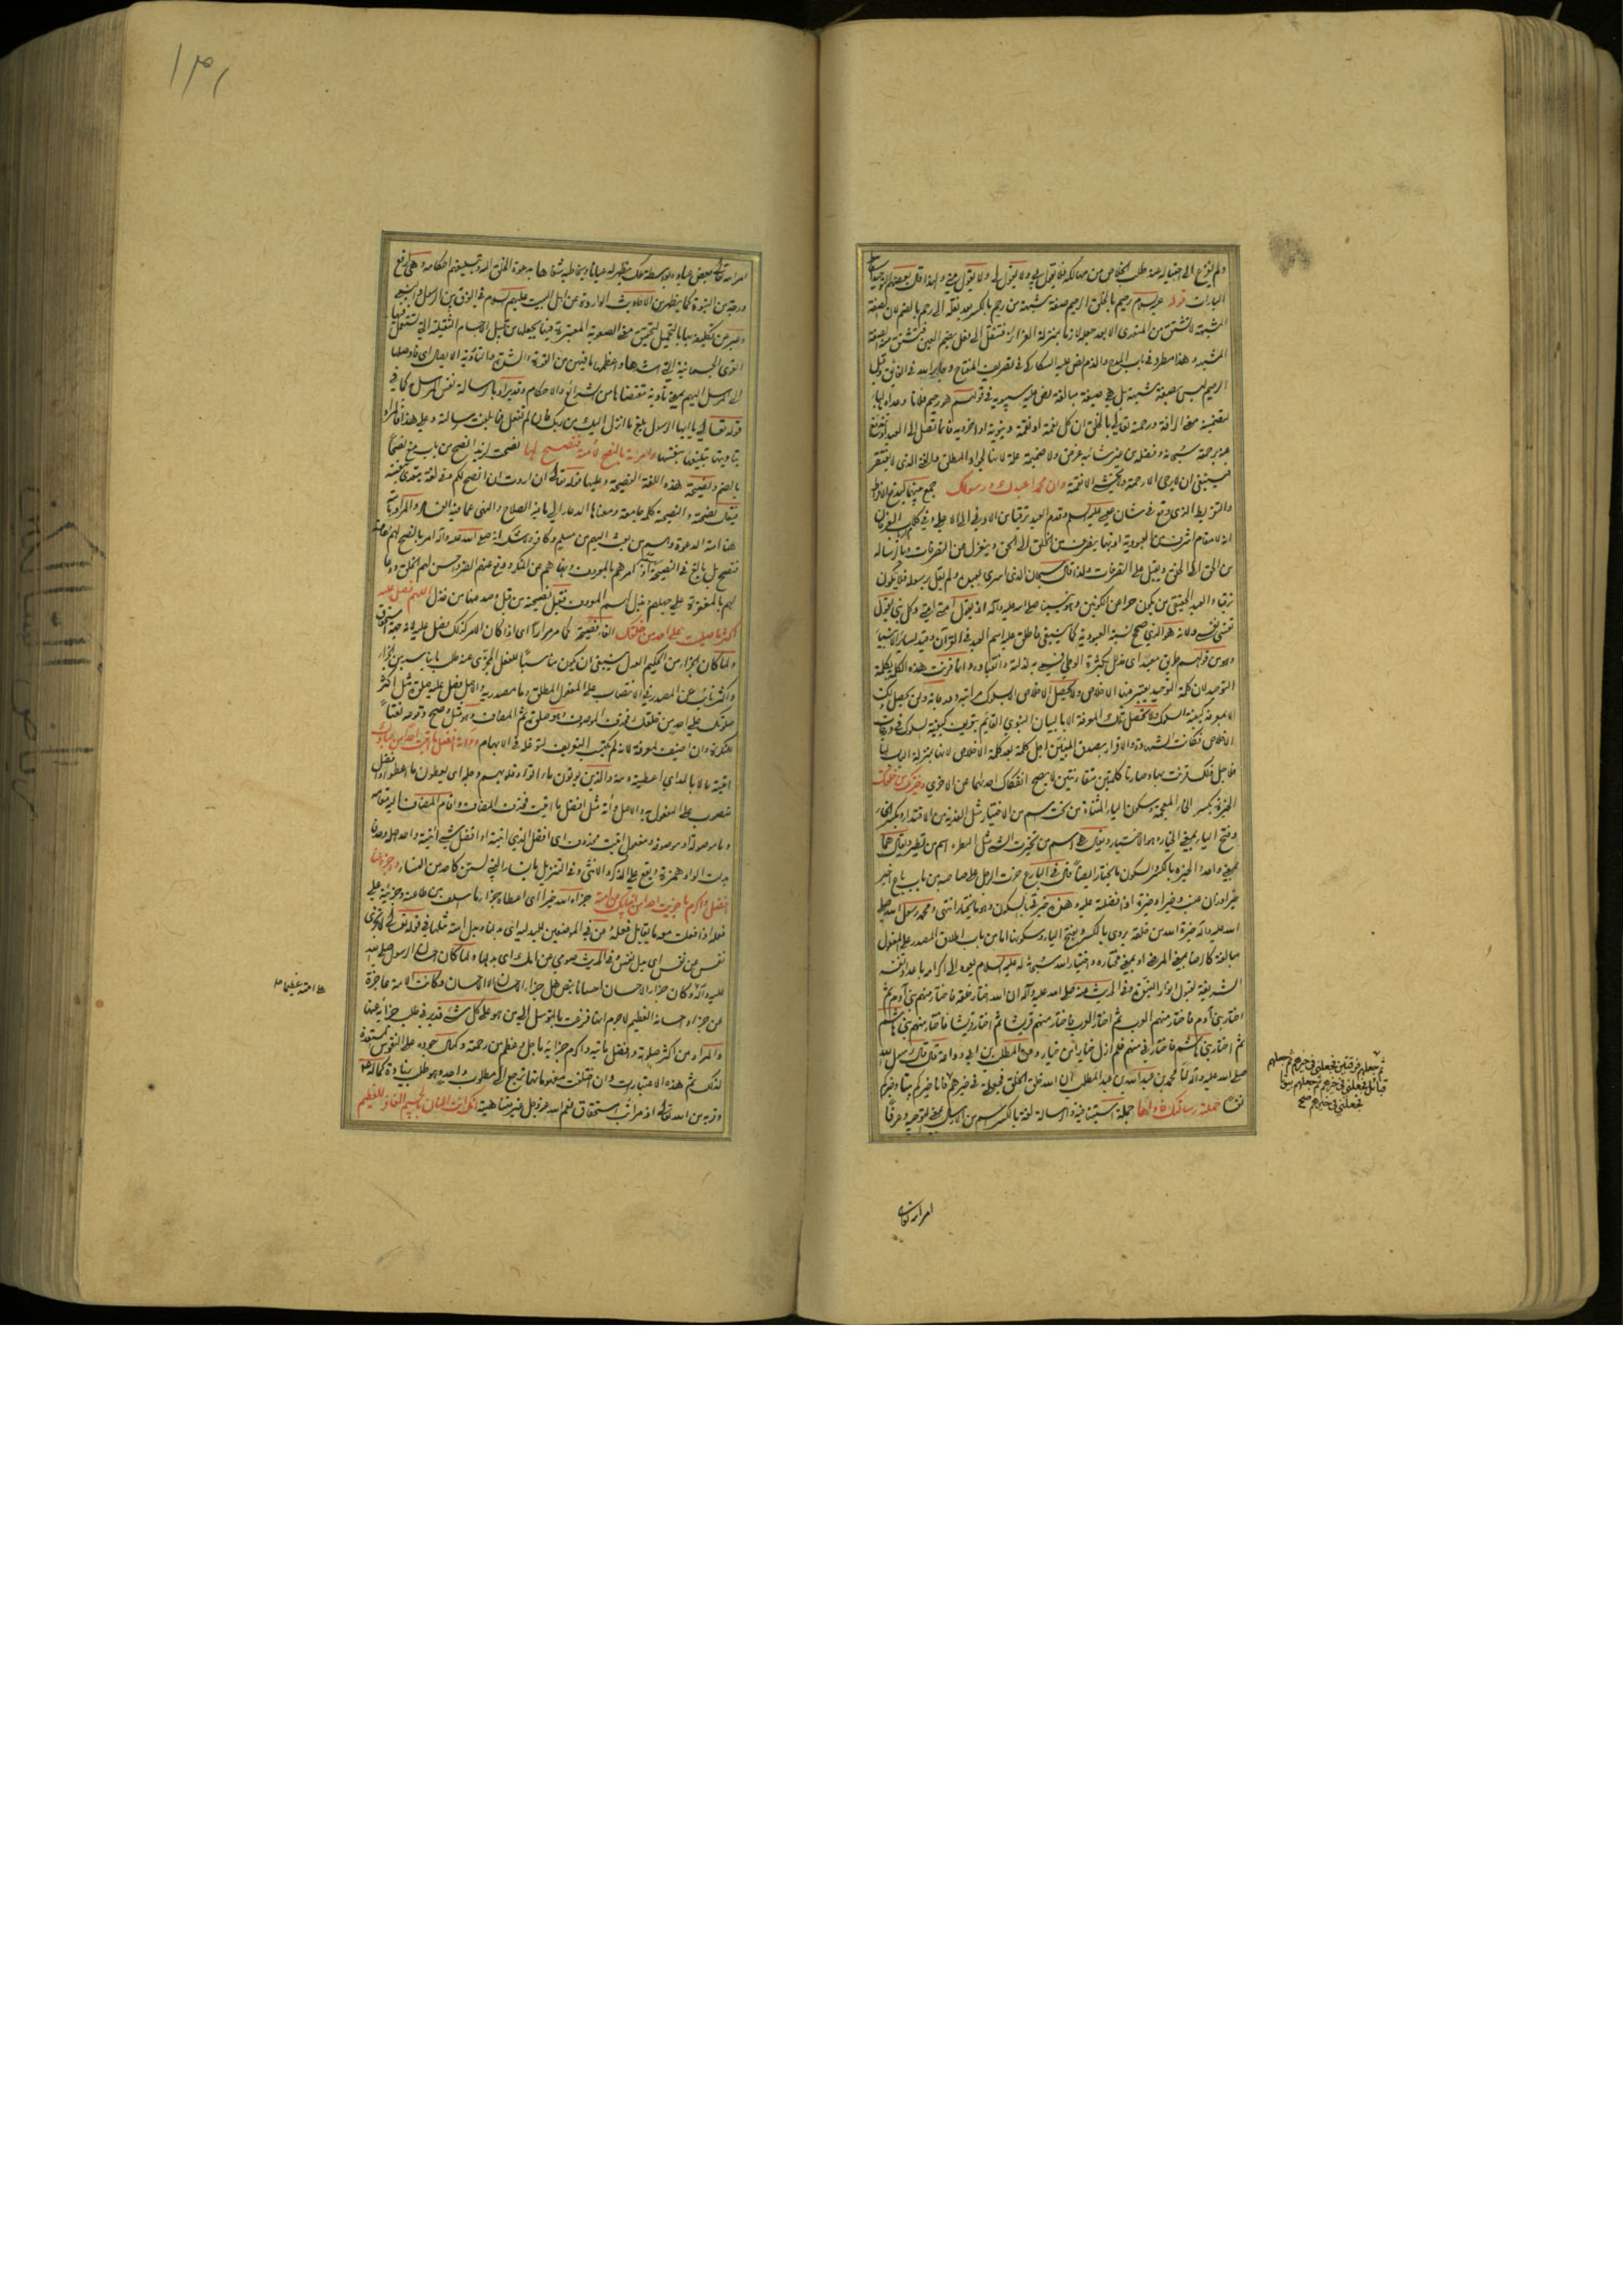 ولم يفزع الى اختياره عند طلب الخلاص من مهالكه فلا يقول لي ولا يقول مني ولهذا قال بعضهم التوحيد اسقاط
الياءات قوله عليه السلام رحيم بالخلق الرحيم صفة مشبهة من رحم بالكسر بعد نقله الى رحم بالضم لان الصفة
المشبهة لا تشتق من المتعدي الا بعد جعله لازما بمنزلة الغرائز فتنقل الى فعل بضم العين فتشتق منه الصفة
المشبهة وهذا مطرد في باب المدح والذم نص عليه السكاكي في تصريف المفتاح و في الفائق وقيل
الرحيم ليس بصفة مشبهة بل هي صيغة مبالغة نص عليه سيبويه في قولهم هو رحيم فلانا وعداه بالباء
لتضمينه معنى الرأفة ورحمته تعالى بالخلق ان كل نعمة او نقمة دنيوية او اخروية فانما تصل الى العبد او تندفع
عنه برحمته سبحانه وفضله من غير شائبة غرض ولا ضميمة علة لانه الجواد المطلق والغني الذي لا يفتقر
فينبغي ان لا يرجى الا رحمته ولا يخشى الا نقمته وان محمدا عبدك ورسولك جمع بينهما لدفع الافراط
والتفريط الذي وقع في شان عيسى عليه السلام وقدم العبد ترقيا من الادنى الى الاعلى وفي كلام بعض العارفين
انه لا مقام اشرف من العبودية اذ بها ينصرف من الخلق الى الحق وينعزل عن التصرفات وبالرسالة
من الحق الى الخلق ويقبل على التصرفات ولذا قال سبحان الذي اسرى بعبده ولم يقل برسوله فلا يكون
ترقيا والعبد الحقيقي من يكون حرا عن الكونين وهو نبينا صلى الله عليه وآله اذ يقول امتي امتي وكل نبي يقول
نفسي نفسي ولانه هو الذي صحح نسبة العبودية كما ينبغي فاطلق عليه اسم العبد في القرآن وقيد لسائر الانبياء
وهو من قولهم طريق معبد اي مذلل بكثرة الوطي فسمي به لذلته وانقياده وانما قرنت هذه الكلمة بكلمة
التوحيد لان كلمة التوحيد يعتبر فيها الاخلاص ولا يحصل الاخلاص الا بسلوك مراتبه ودرجاته ولن يحصل ذلك
الا بمعرفة كيفية السلوك ولا تحصل تلك المعرفة الا بالبيان النبوي القائم بتعريف كيفية السلوك في درجات
الاخلاص فكانت الشهادة والاقرار بصدق المبين اجل كلمة بعد كلمة الاخلاص لانها بمنزلة الباب لها
فلاجل ذلك قرنت بها وصارتا كلمتين متقارنتين لا يصح انفكاك احديهما عن الاخرى وخيرتك من خلقك
الخيرة بكسر الخاء المعجمة وسكون الياء المثناة من تحت اسم من الاختيار مثل الفدية من الافتداء وبكسر الخاء
وفتح الياء بمعنى الخيار وهو الاختيار ويقال هي اسم من تخيرت الشيء مثل الطيرة اسم من تطير ويقال هما
بمعنى واحد والخيرة بالكسر والسكون ما يختار ايضا قال في البارع خرت الرجل على صاحبه من باب باع اخيره
خيرا وزان عنب وخيرا وخيرة اذا فضلته عليه وهذا خيرتي بالسكون وهو ما يختار انتهى ومحمد رسول الله صلى
الله عليه وآله خيرة الله من خلقه يروى بالكسر وبفتح الياء وسكونها اما من باب اطلاق المصدر على المفعول
مبالغة كالرضا بمعنى المرضي او بمعنى مختاره واختيار الله سبحانه له عليه السلام يعود الى اكرامه باعداد نفسه
الشريفة لقبول انوار النبوة وفي الحديث عنه صلى الله عليه وآله ان الله اختار خلقه فاختار منهم بني آدم ثم
اختار بني آدم فاختار منهم العرب ثم اختار العرب فاختار منهم قريشا ثم اختار قريشا فاختار منهم بني هاشم
ثم اختار بني هاشم فاختارني منهم فلم ازل خيارا من خيار وعن المطلب بن ابي وداعة قال قال رسول الله
صلى الله عليه وآله انا محمد بن عبد الله بن عبد المطلب ان الله خلق الخلق فجعلني في خيرهم فانا خيركم بيتا وخيركم
نفسا حملته رسالتك فاداها جملة استينافية والرسالة لغة بالكسر اسم من الارسال بمعنى التوجيه وعرفا
ثم جعلهم فرقتين فجعلني في خيرهم ثم جعلهم
قبائل فجعلني في خيرهم ثم جعلهم بيوتا
فجعلني في خيرهم صح
امر الله تعالى
امر الله تعالى بعض عباده بواسطة ملك يظهر له عيانا ويخاطبه شفاها بدعوة الخلق اليه وتبليغهم احكامه وهي ارفع
درجة من النبوة كما يظهر من الاحاديث الواردة عن اهل البيت عليهم السلام في الفرق بين الرسول والنبي
وعبر عن تكليفه بها بالتحميل لتخييل معنى الصعوبة المعتبرة فيها بجعلها من قبيل الاجسام الثقيلة التي تستعمل فيها
القوى الجسمانية التي اشدها واعظمها ما فيهن من القوة والشدة والتأدية الايصال اي فاوصلها
الى المرسل اليهم بمعنى تأدية مقتضاها من الشرائع والاحكام وقد يراد بالرسالة نفس المرسل به كما في
قوله تعالى يا ايها الرسول بلغ ما انزل اليك من ربك وان لم تفعل فما بلغت رسالته وعلى هذا فالمراد
بتأديتها تبليغها بنفسها وامرته بالنصح لامته فنصح لها نصحت لزيد انصح من باب منع نصحا
بالضم ونصيحة هذه اللغة الفصيحة وعليها قوله تعالى ان اردت ان انصح لكم وفي لغة يتعدى بنفسه
فيقال نصحته والنصيحة كلمة جامعة ومعناها الدعاء الى ما فيه الصلاح والنهي عما فيه الفساد والمراد بامته
هنا امة الدعوة وهم من بعث اليهم من مسلم وكافر ولا شك انه صلى الله عليه وآله امر بالنصح لهم عامة
فنصح بل بالغ في النصيحة اذ امرهم بالمعروف ونهاهم عن المنكر ودفع عنهم الضر وحسن لهم الخلق ودعا
لهم بالمغفرة على جهلهم وبذل لهم المعروف فقبل نصيحته من قبل وصد عنها من خذل اللهم فصل عليه
اكثر ما صليت على احد من خلقك الفاء فصيحة كما مر مرارا اي اذا كان الامر كذلك فصل عليه لانه حقيق
ولما كان الجزاء من الحكيم العدل ينبغي ان يكون مناسبا للفعل المجزي عنه طلب ما يناسبه من الجزاء
واكثر نائب عن المصدر في الانتصاب على المفعول المطلق وما مصدرية والاصل فصل عليه صلوة مثل اكثر
صلوتك على احد من خلقك فحذف الموصوف وهو صلوة ثم المضاف وهو مثل وصح وقوعه نعتا
للنكرة وان اضيف لمعرفة لانه لم يكتسب التعريف لتوغله في الابهام وآته افضل ما آتيت احدا من عبادك
آتيته مالا بالمد اي اعطيته ومنه والذين يؤتون ما آتوا وقلوبهم وجلة اي يعطون ما اعطوا وافضل
منصوب على المفعولية والاصل وآته مثل افضل ما آتيت فحذف المضاف واقام المضاف اليه مقامه
وما موصولة او موصوفة ومفعول آتيت محذوف اي افضل الذي آتيته او افضل شيء آتيته واحد اصله وحد فا
بدلت الواو همزة ويقع على الذكر والانثى وفي التنزيل يا نساء النبي لستن كاحد من النساء واجزه عنا
افضل واكرم ما جزيت احدا من انبيائك عن امته جزاه الله خيرا اي اعطاه جزاء ما سلف من طاعته وجزيته على
فعله اذا فعلت معه ما يقابل فعله وعن في الموضعين للبدلية اي بدلنا وبدل امته مثلها في قوله تعالى لا تجزي
نفس عن نفس اي بدل نفس وفي الحديث صومي عن امك اي بدلها ولما كان احسان الرسول صلى الله
عليه وآله وكان جزاء الاحسان احسانا بنص هل جزاء الاحسان الا الاحسان وكانت الامة عاجزة
عن جزاء احسانه العظيم لا جرم انها فزعت بالتوسل الى من هو على كل شيء قدير في طلب جزائه عنها
والمراد من اكثر صلوته وافضل ما آتيه واكرم جزائه ما جل وعظم من رحمته وكمال جوده على النفوس المستعدة
لذلك ثم هذه الاعتبارات وان اختلفت مفهوماتها ترجع الى مطلوب واحد وهو طلب زيادة كماله
وقربه من الله تعالى اذ مراتب استحقاق نعم الله عز وجل غير متناهية انك انت المنان بالجسيم الغافر للعظيم